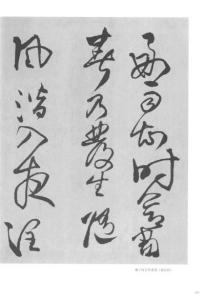 好雨知時節當
春乃發生隨
風潛入夜潤